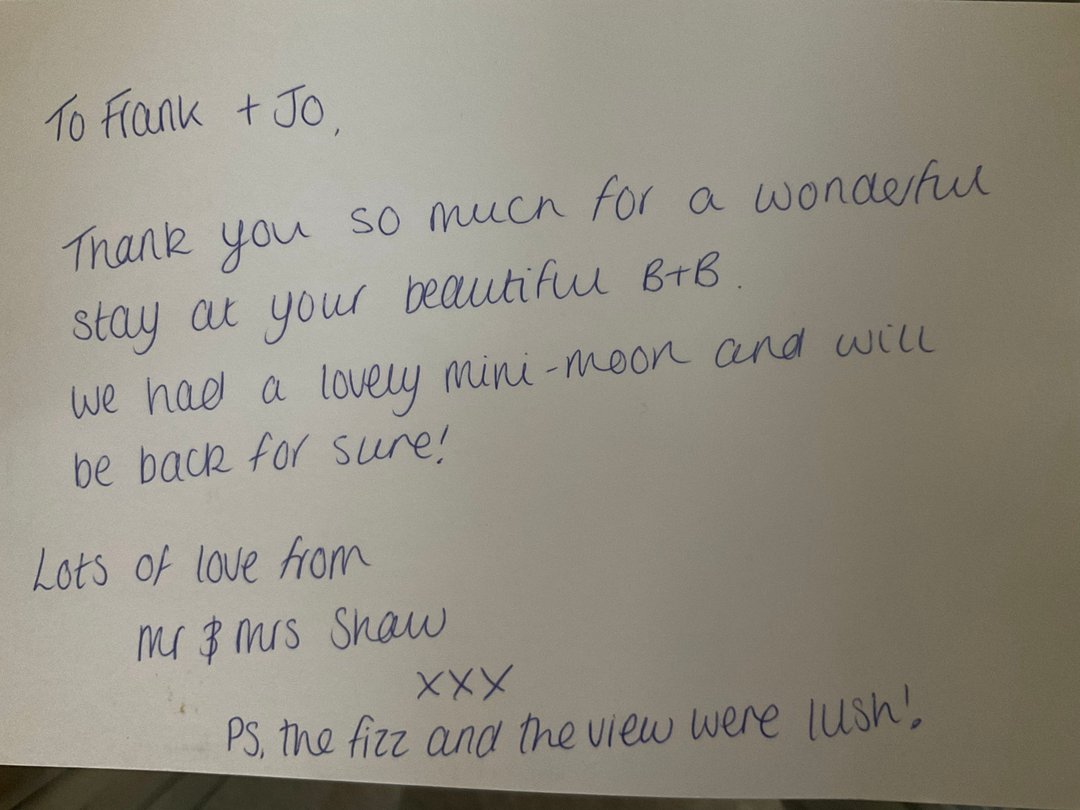 To Frank + Jo,
Thank you so much for a wonderful
stay at your beautiful B+B.
we had a lovely mini-moon and will
be back for sure!
Lots of love from
Mr & Mrs Shaw
xxx
PS, the fizz and the view were lush!